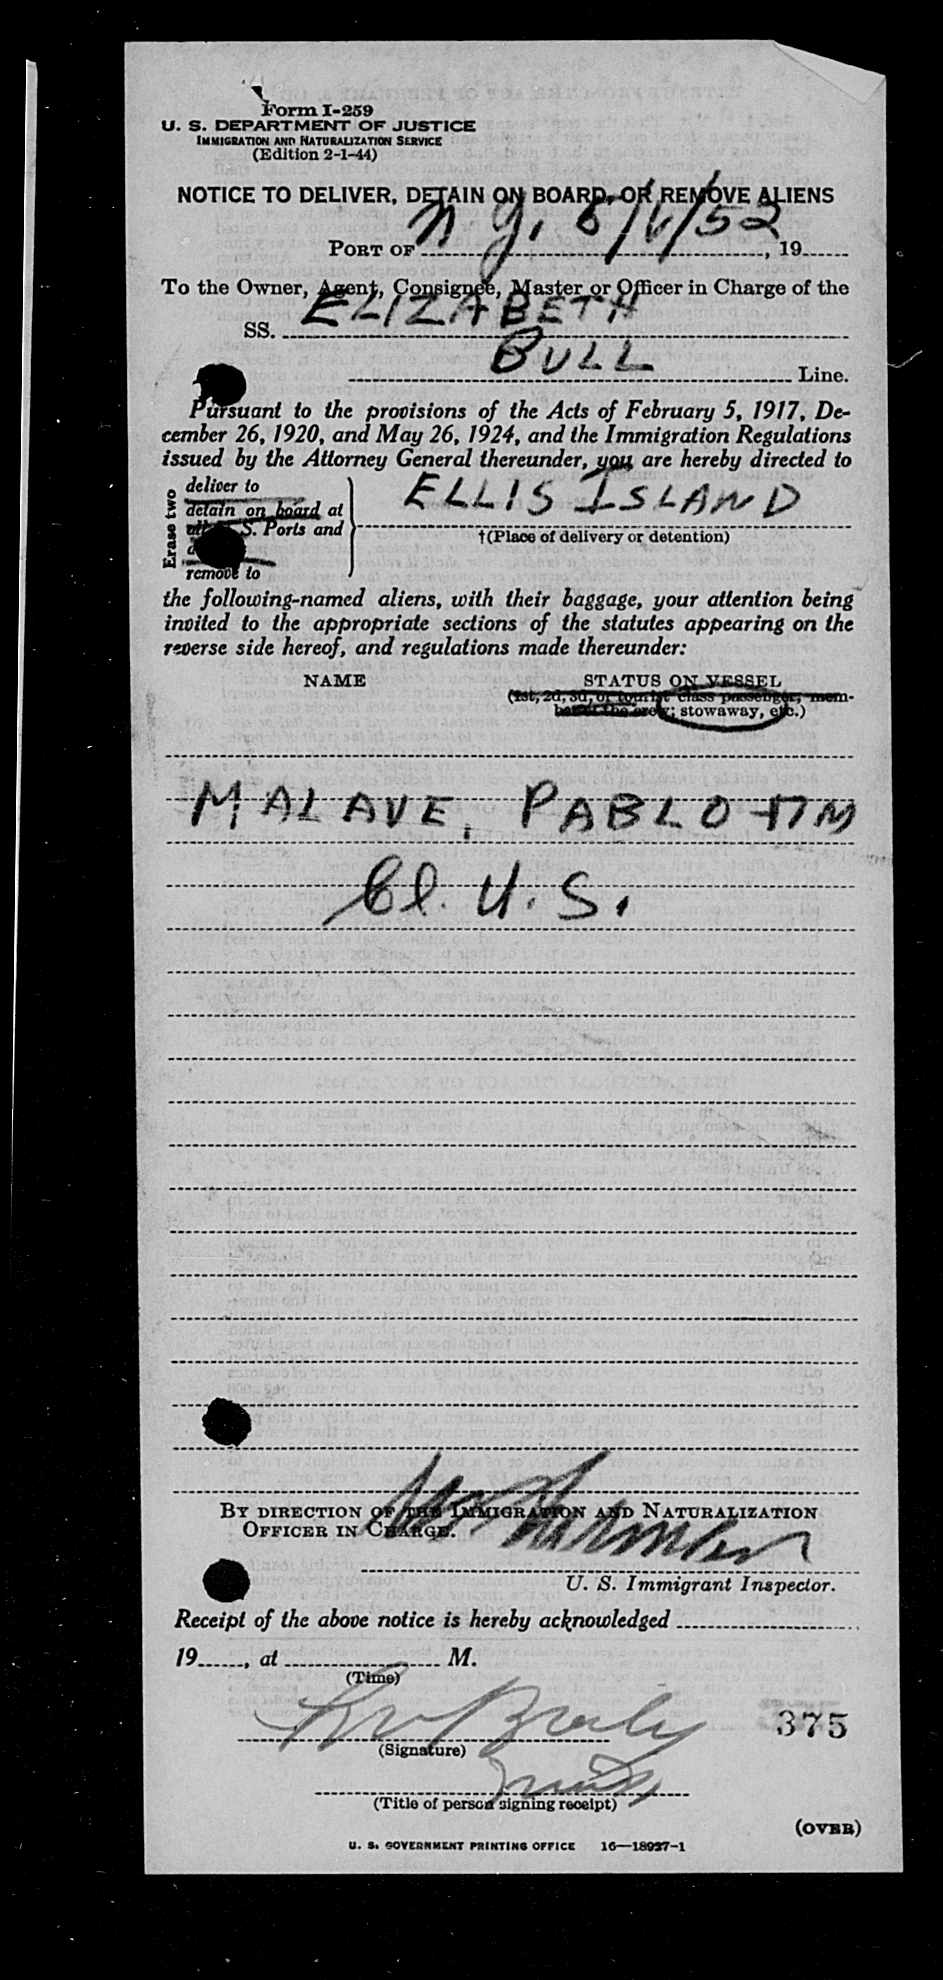 Form I-259
U. S. DEPARTMENT OF JUSTICE
IMMIGRATION AND NATURALIZATION SERVICE
(Edition 2-1-44)
NOTICE TO DELIVER, DETAIN ON BOARD, OR REMOVE ALIENS
PORT OF N.Y. 5/6/52, 19
To the Owner, Agent, Consignee, Master or Officer in Charge of the
SS. ELIZABETH
BULL Line.
Pursuant to the provisions of the Acts of February 5, 1917, De-
cember 26, 1920, and May 26, 1924, and the Immigration Regulations
issued by the Attorney General thereunder, you are hereby directed to
Erase two
deliver to
detain on board at
all U. S. Ports and
remove to
ELLIS ISLAND
†(Place of delivery or detention)
the following-named aliens, with their baggage, your attention being
invited to the appropriate sections of the statutes appearing on the
reverse side hereof, and regulations made thereunder:
NAME STATUS ON VESSEL
(1st, 2d, 3d, or tourist class passenger, mem-
ber of the crew; stowaway, etc.)
MALAVE, PABLO
Cl. U.S.
BY DIRECTION OF THE IMMIGRATION AND NATURALIZATION
OFFICER IN CHARGE.
U. S. Immigrant Inspector.
Receipt of the above notice is hereby acknowledged
19, at M.
(Time)
(Signature)
375
(Title of person signing receipt)
(OVER)
U. S. GOVERNMENT PRINTING OFFICE 16—18937-1